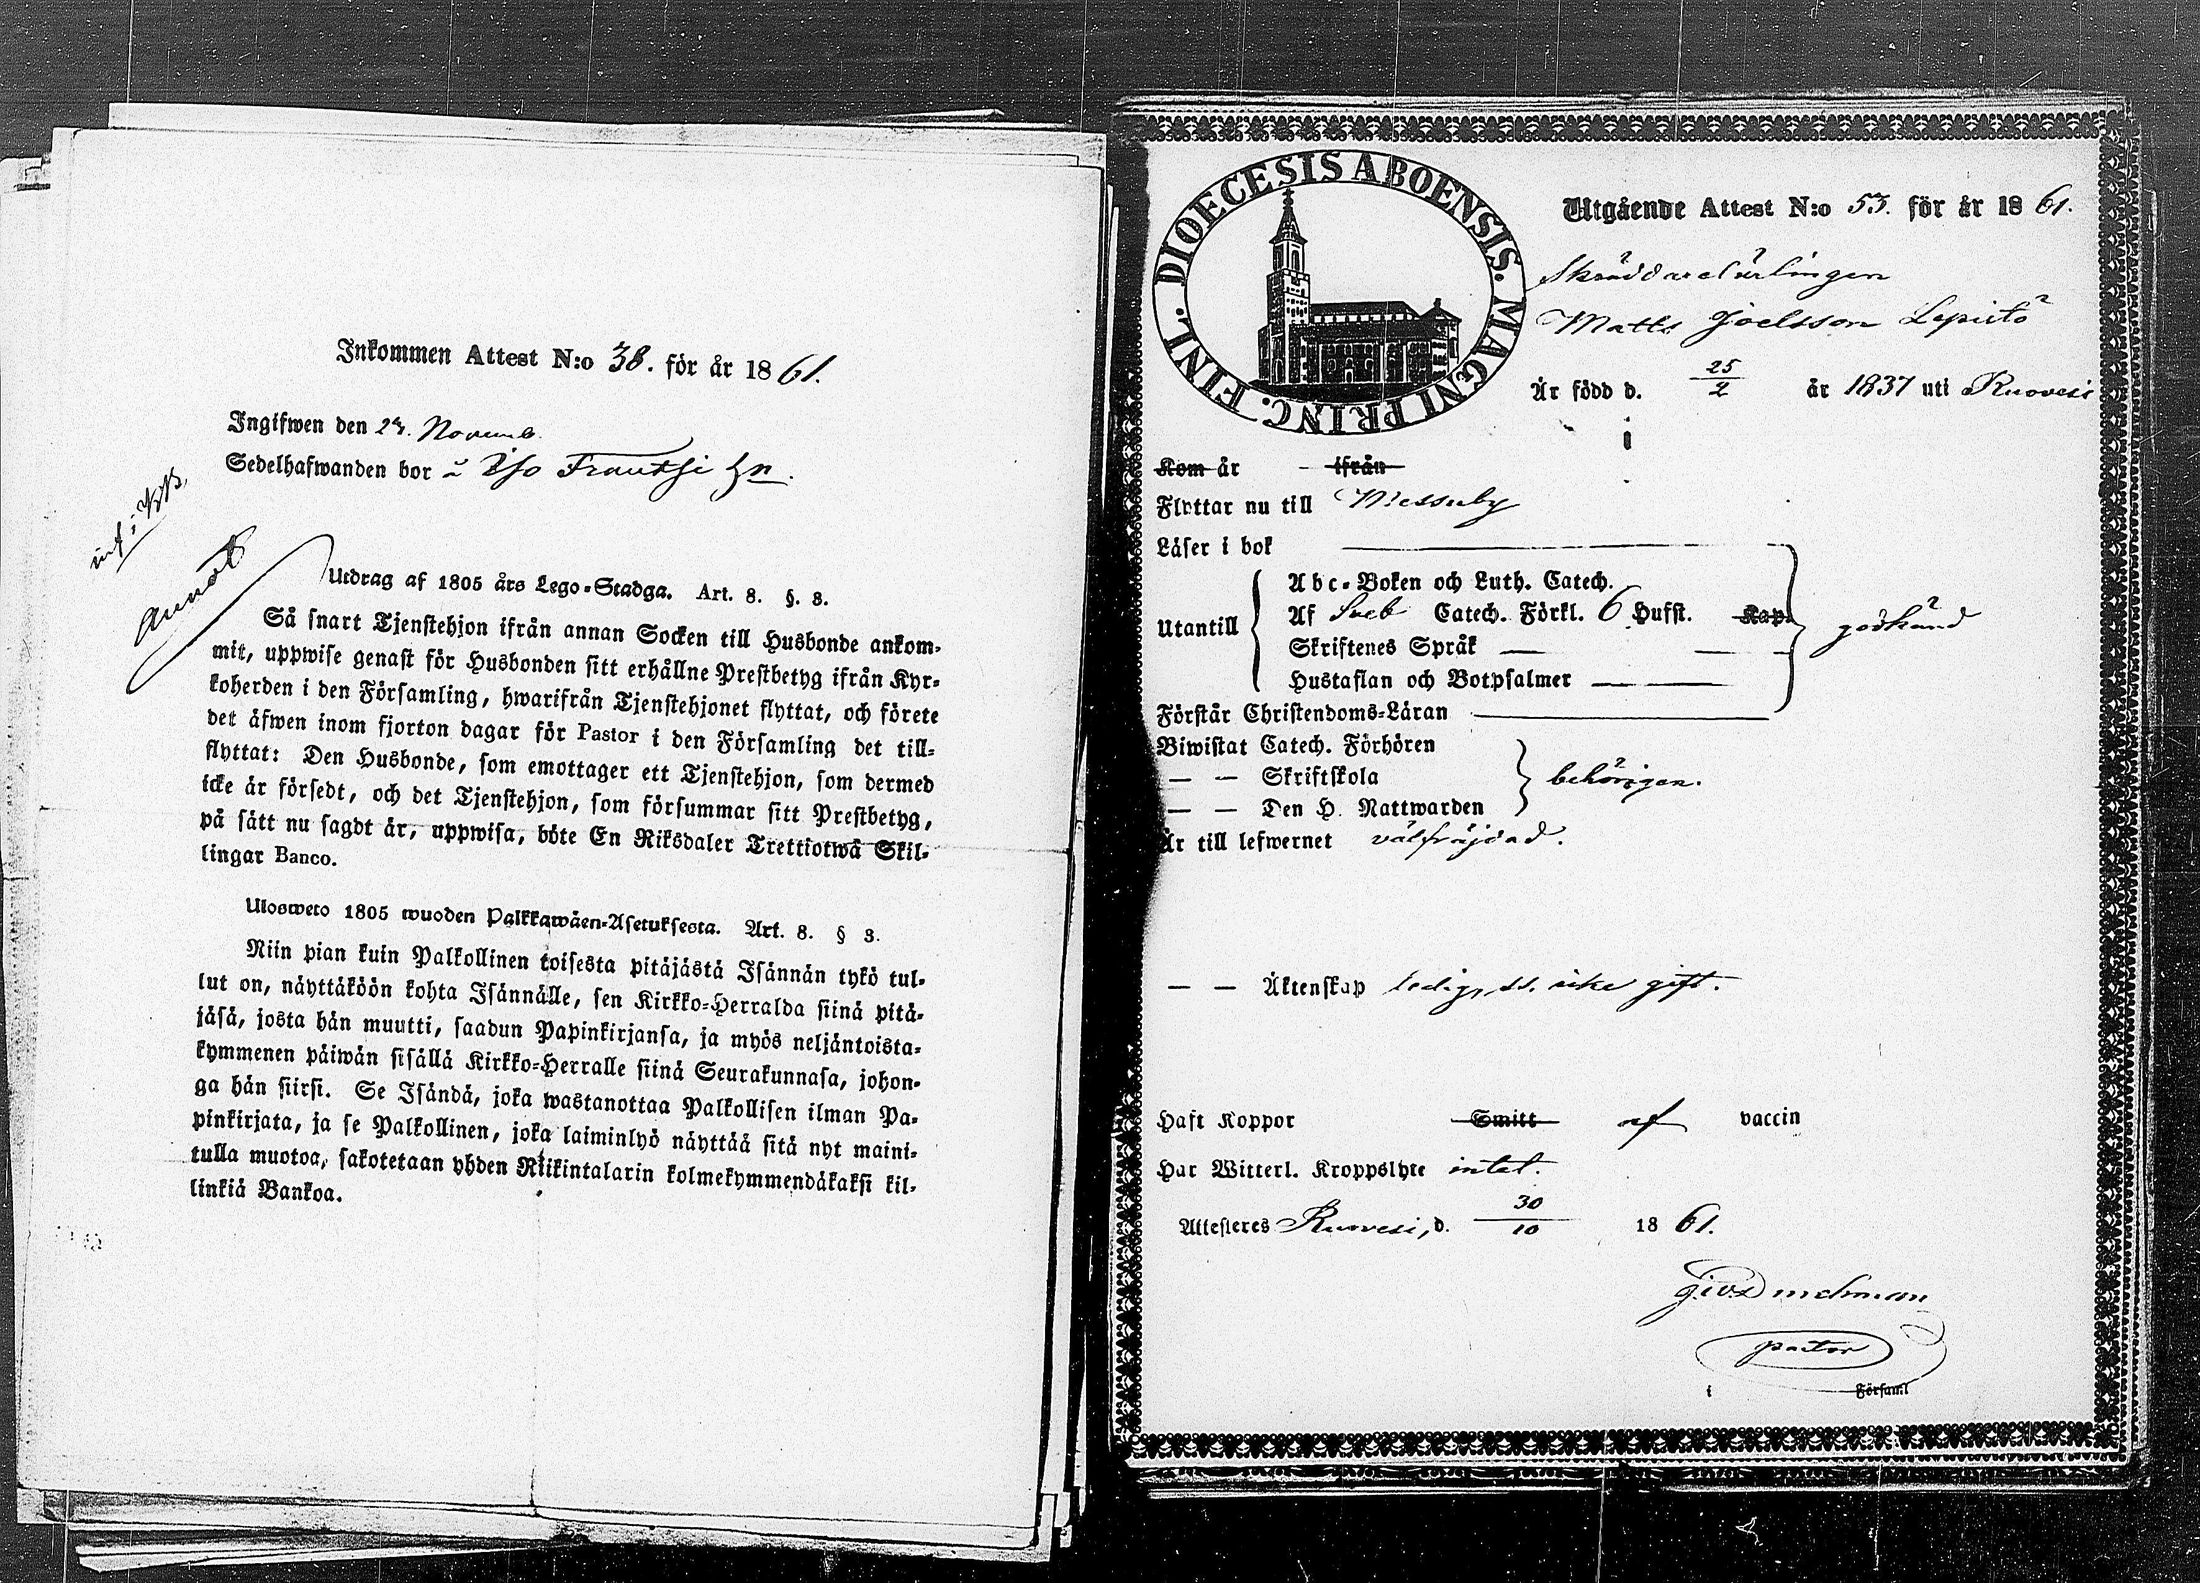 Inkommen Attest N:o 38. för år 1861.
Ingifwen den 23. Novemb.
Sedelhafwanden bor i Iso Frantsi hn.
inf. i KB.
Annot
Utdrag af 1805 års Lego-Stadga. Art. 8. §. 3.
Så snart Tjenstehjon ifrån annan Socken till Husbonde ankom-
mit, uppwise genast för Husbonden sitt erhållne Prestbetyg ifrån Kyr-
koherden i den Församling, hwarifrån Tjenstehjonet flyttat, och förete
det äfwen inom fjorton dagar för Pastor i den Församling det till-
flyttat: Den Husbonde, som emottager ett Tjenstehjon, som dermed
icke är försedt, och det Tjenstehjon, som försummar sitt Prestbetyg,
på sätt nu sagdt är, uppwisa, böte En Riksdaler Trettiotwå Skil-
lingar Banco.
Ulosweto 1805 wuoden Palkkawäen-Asetuksesta. Art. 8. § 3.
Niin pian kuin Palkollinen toisesta pitäjästä Isännän tykö tul-
lut on, näyttäköön kohta Isännälle, sen Kirkko-Herralda siinä pitä-
jäsä, josta hän muutti, saadun Papinkirjansa, ja myös neljäntoista-
kymmenen päiwän sisällä Kirkko-Herralle siinä Seurakunnasa, johon-
ga hän siirsi. Se Isändä, joka wastanottaa Palkollisen ilman Pa-
pinkirjata, ja se Palkollinen, joka laiminlyö näyttää sitä nyt maini-
tulla muotoa, sakotetaan yhden Riikintalarin kolmekymmendäkaksi kil-
linkiä Bankoa.
DIOECESIS ABOENSIS. MAGNI PRINC. FINL.
Utgående Attest N:o 53. för år 1861.
Skräddarelärlingen
Matts Joelsson Lepistö
Är född d. 25/2 år 1837 uti Ruovesi
i
Kom år - ifrån
Flyttar nu till Messuby
Läser i bok
Abc-Boken och Luth. Catech.
Utantill Af Sveb Catech. Förkl. 6 Hufst. Kap. godkänd
Skriftenes Språk —
Hustaflan och Botpsalmer —
Förstår Christendoms-Läran
Biwistat Catech. Förhören
— — Skriftskola behörigen.
— — Den H. Nattwarden
Är till lefwernet välfräjdad.
— — Äktenskap ledig, d.ä. icke gift.
Haft Koppor Smitt af vaccin
Har Witterl. Kroppslyte intet.
Attesteras Ruovesi, d. 30/10 1861.
pastor
i Församl